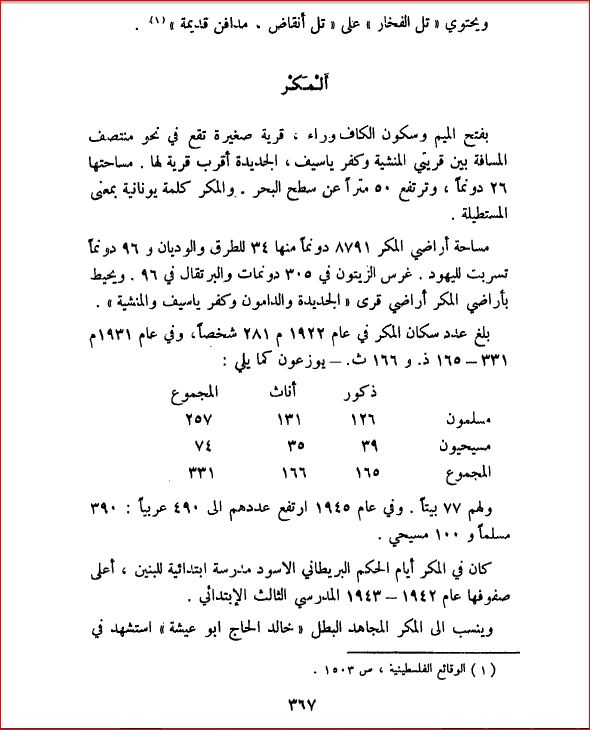 ويحتوي « تل الفخار » على « تل أنقاض . مدافن قديمة » (١) .
أَلْمَكْر
بفتح الميم وسكون الكاف وراء ، قرية صغيرة تقع في نحو منتصف
المسافة بين قريتي المنشية وكفر ياسيف ، الجديدة أقرب قرية لها . مساحتها
٢٦ دونماً ، وترتفع ٥٠ متراً عن سطح البحر . والمكر كلمة يونانية بمعنى
المستطيلة .
مساحة أراضي المكر ٨٧٩١ دونماً منها ٣٤ للطرق والوديان و ٩٦ دونماً
تسربت لليهود . غرس الزيتون في ٣٠٥ دونمات والبرتقال في ٩٦ . ويحيط
بأراضي المكر أراضي قرى « الجديدة والدامون وكفر ياسيف والمنشية » .
بلغ عدد سكان المكر في عام ١٩٢٢ م ٢٨١ شخصاً، وفي عام ١٩٣١م
٣٣١ – ١٦٥ ذ. و ١٦٦ ث. – يوزعون كما يلي :
ذكور أناث المجموع
مسلمون ١٢٦ ١٣١ ٢٥٧
مسيحيون ٣٩ ٣٥ ٧٤
المجموع ١٦٥ ١٦٦ ٣٣١
ولهم ٧٧ بيتاً . وفي عام ١٩٤٥ ارتفع عددهم الى ٤٩٠ عربياً : ٣٩٠
مسلماً و ١٠٠ مسيحي .
كان في المكر أيام الحكم البريطاني الاسود مدرسة ابتدائية للبنين ، أعلى
صفوفها عام ١٩٤٢ – ١٩٤٣ المدرسي الثالث الإبتدائي .
وينسب الى المكر المجاهد البطل « خالد الحاج ابو عيشة » استشهد في
( ١ ) الوقائع الفلسطينية ، ص ١٥٠٣ .
٣٦٧